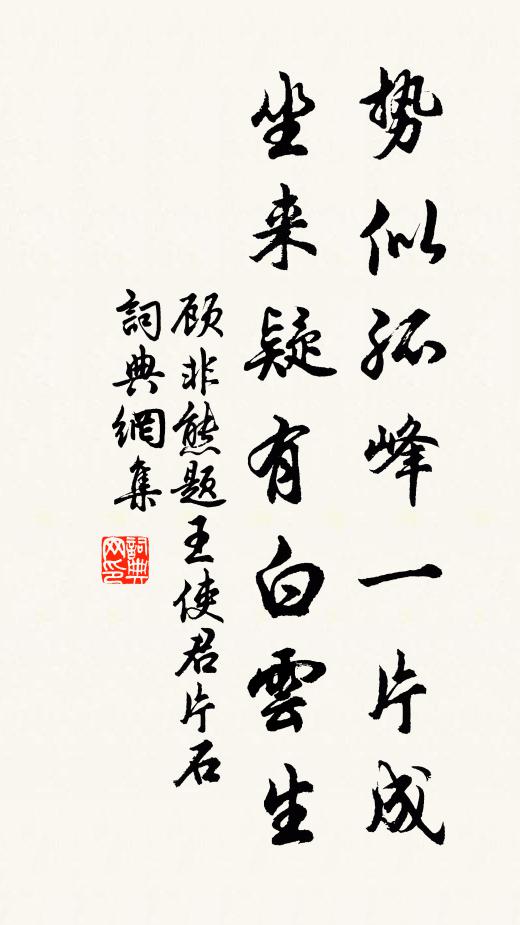 势似孤峰一片成
坐来疑有白雲生
顾非熊题王使君片石
詞典網集
詞典网印